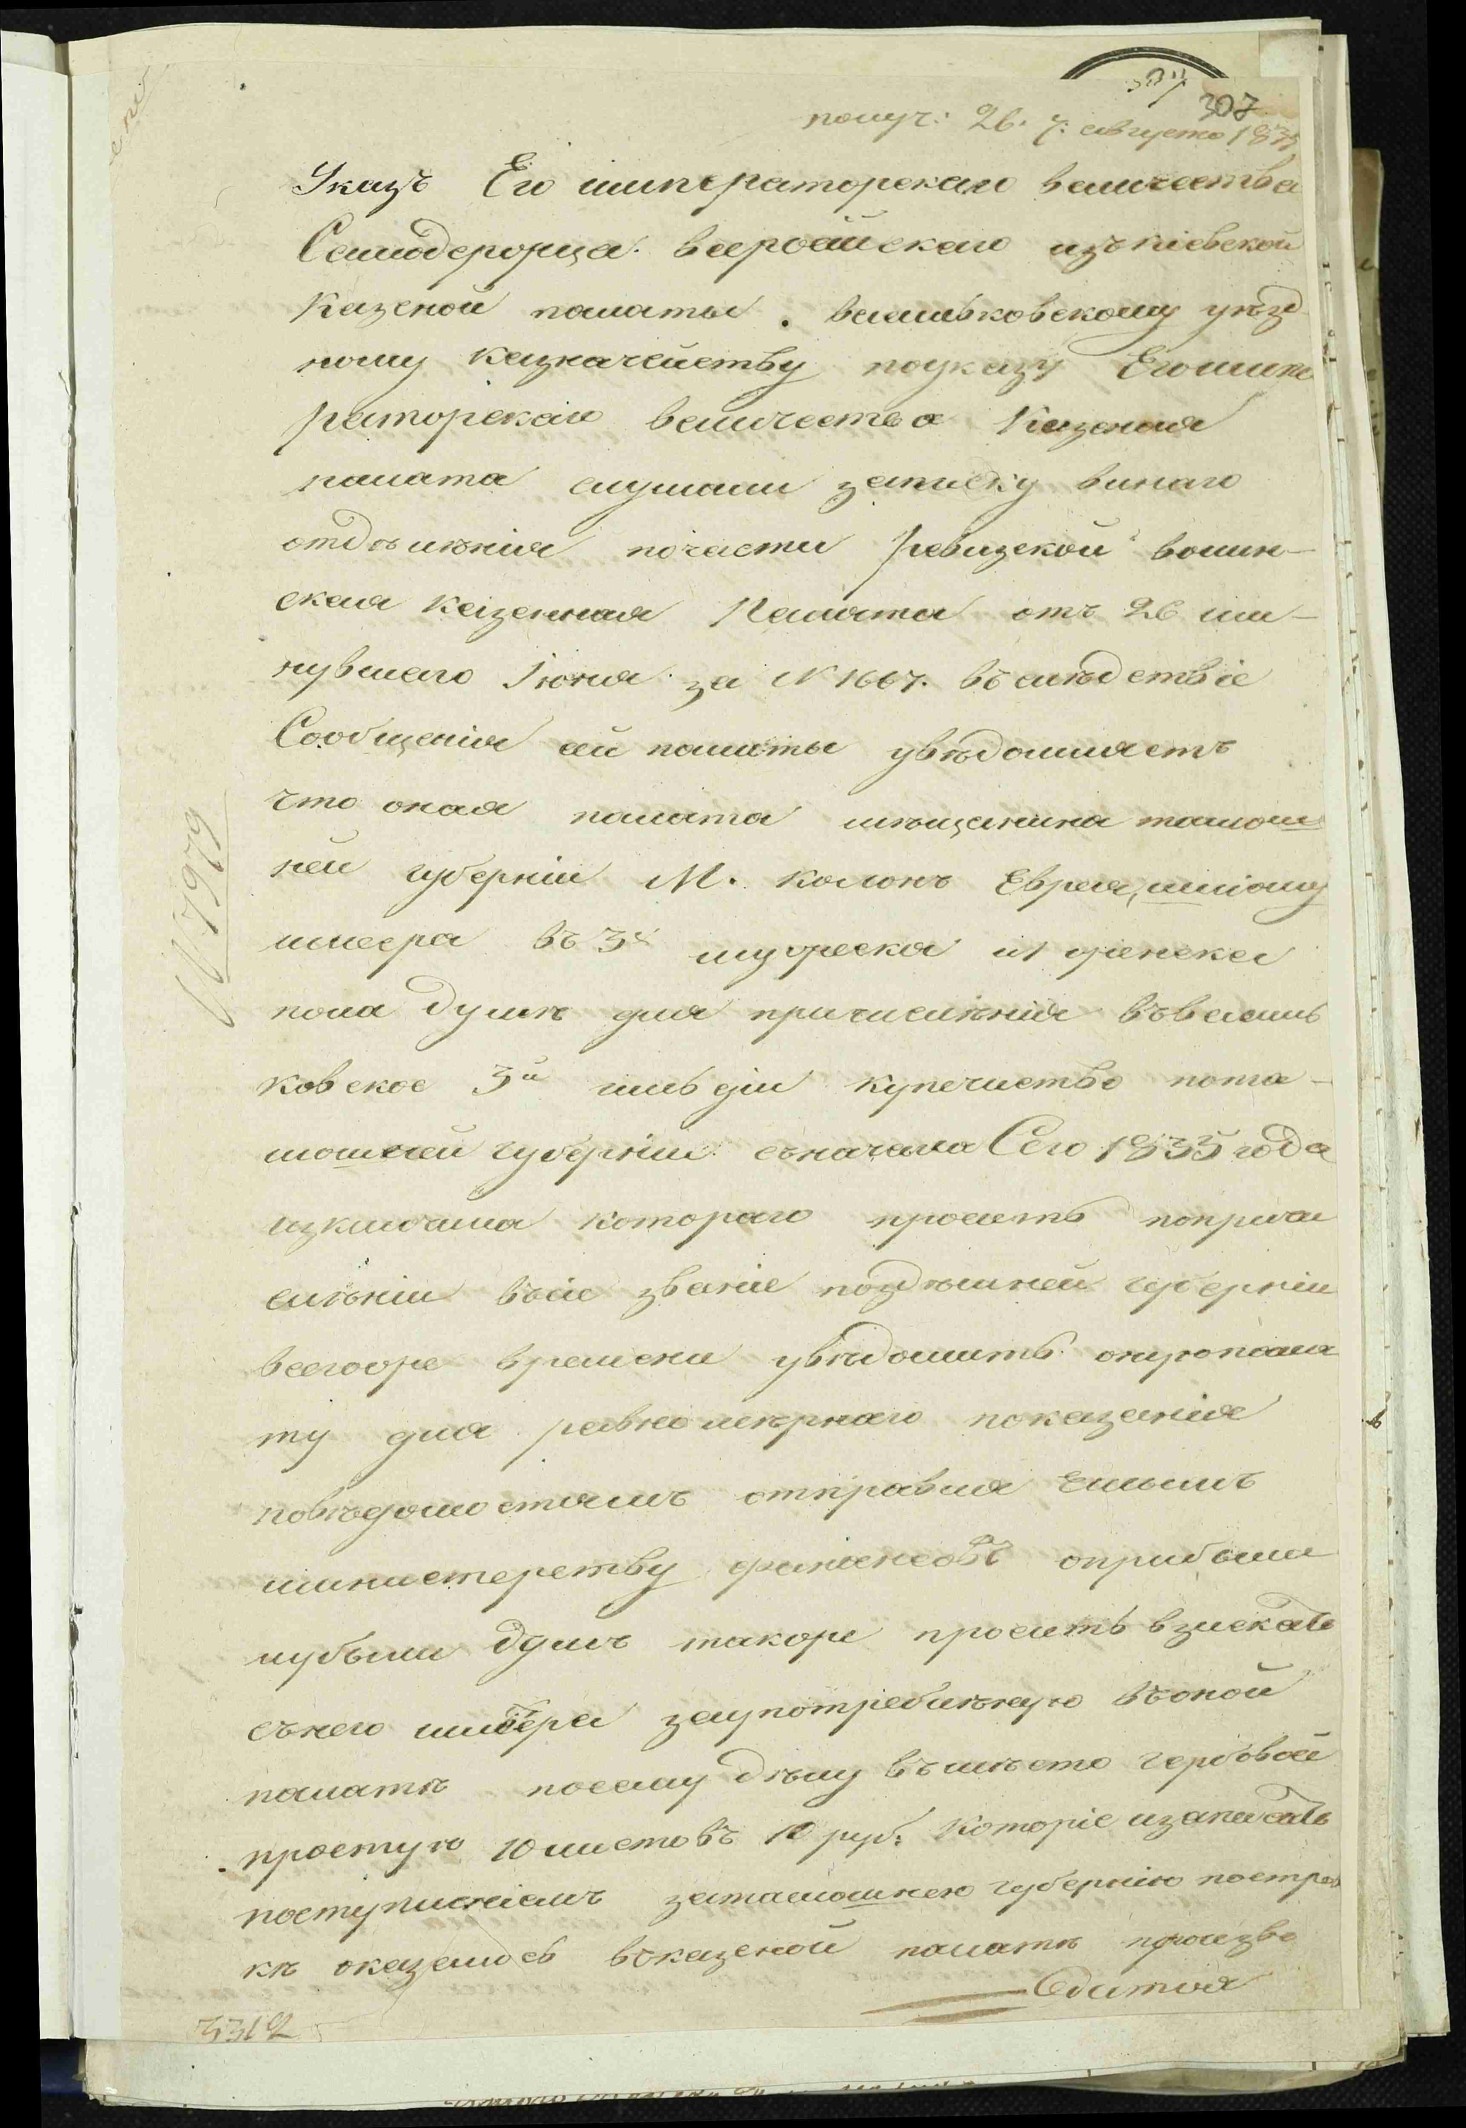 307
получ: 26. 7: августа 1835
Указъ Его императорскаго величества
Самодержца всеросійскаго изъ кіевской
Казеной палаты. васильковскому уѣзд
ному казначейству поуказу Его импе
раторскаго величества Казеная
палата слушали записку винаго
отдѣлѣнія почасти ревизской волын-
ская казенная Палата отъ 26 ми-
нувшаго Іюня за N 1667. въ слѣдствіе
Сообщенія сей палаты увѣдомляетъ
что оная палата мѣщанина тамош
ней губерніи М. колокъ Еврея,
въ 3х мужеска и 1 женска
пола душѣ для причислѣнія въ василь
ковское 3й гильдіи купечиство пота-
мошней губерніи съначала Сего 1835 года
изключила котораго проситъ попричи
слѣніи въсіе званіе поздѣшней губерніи
всегоже времени увѣдомить онуюпала
ту для равномѣрнаго показанія
повѣдомостямъ отправля емымъ
министерству финансовъ оприбыли
иубыли душъ также проситъ взискать
снего заупотребилѣную въоной
палатѣ посему дѣлу въмѣсто гербовой
простую 10 листовъ 10 руб: Которіе изаписать
поступлѣніемъ затамошнею губернію посправ
кѣ оказалось въказеной палатѣ произво
Сдитоя
N 7979